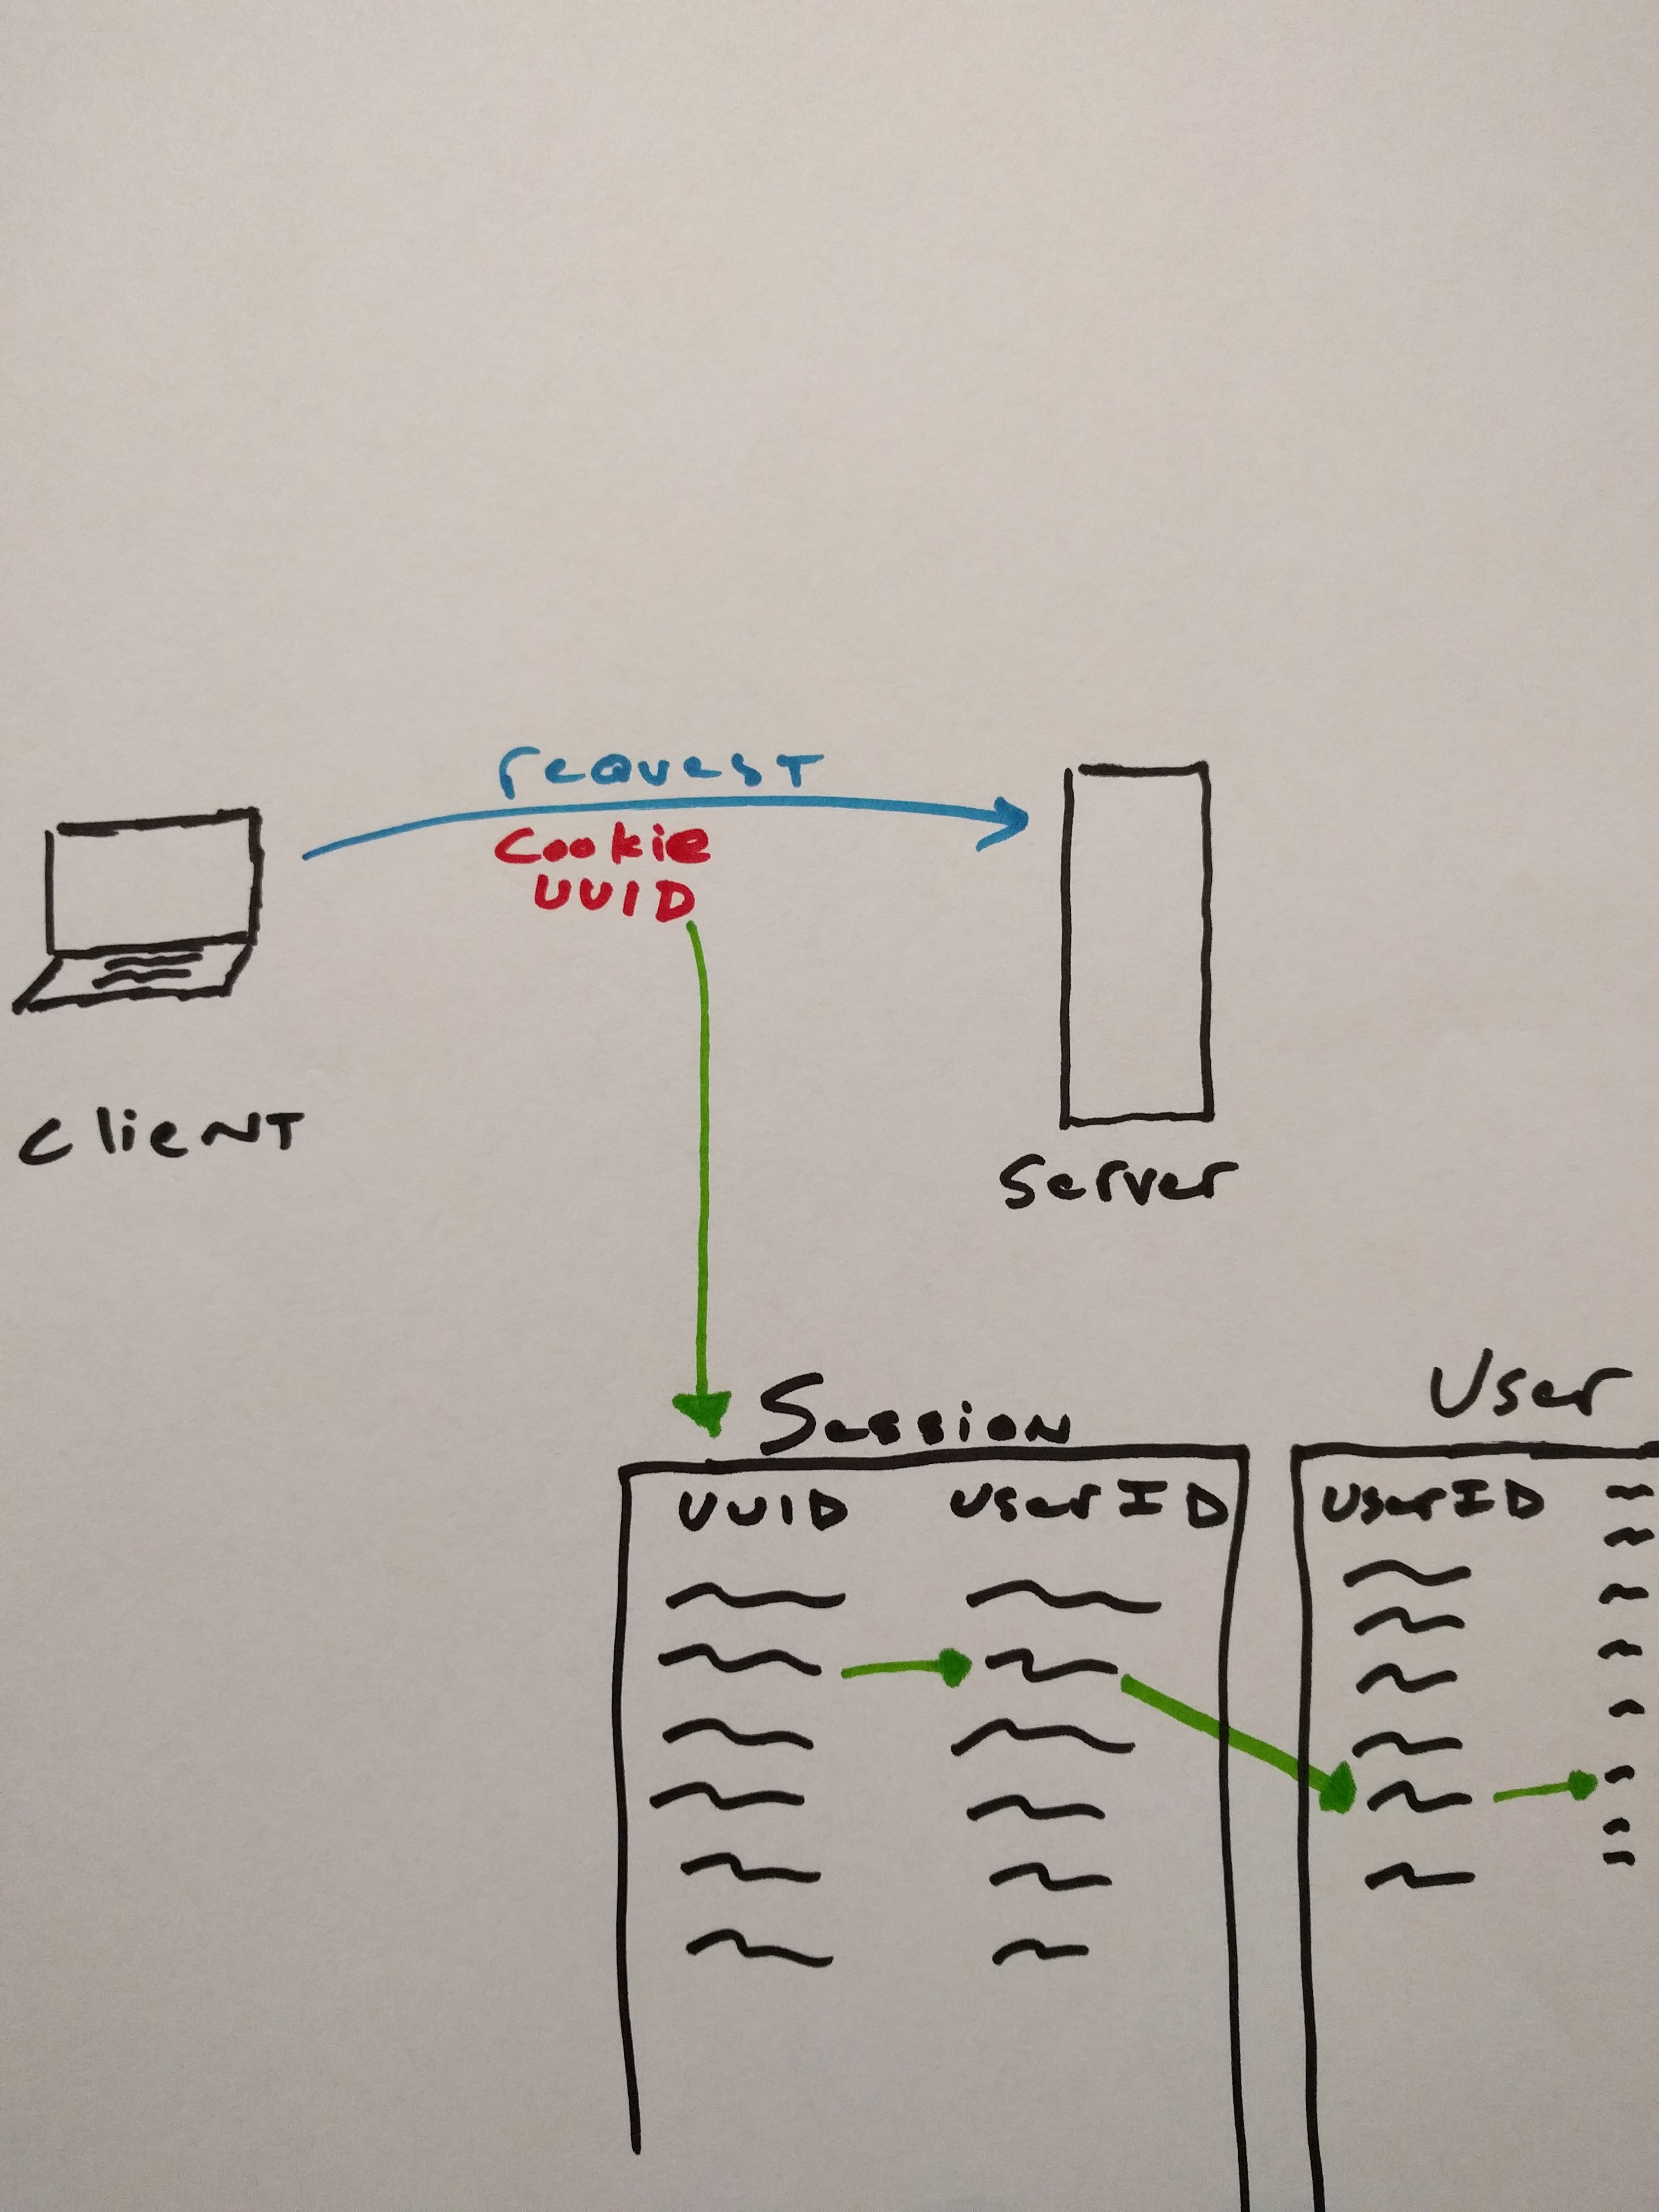 request
Cookie
UUID
client
Server
Session
User
UUID
UserID
UserID